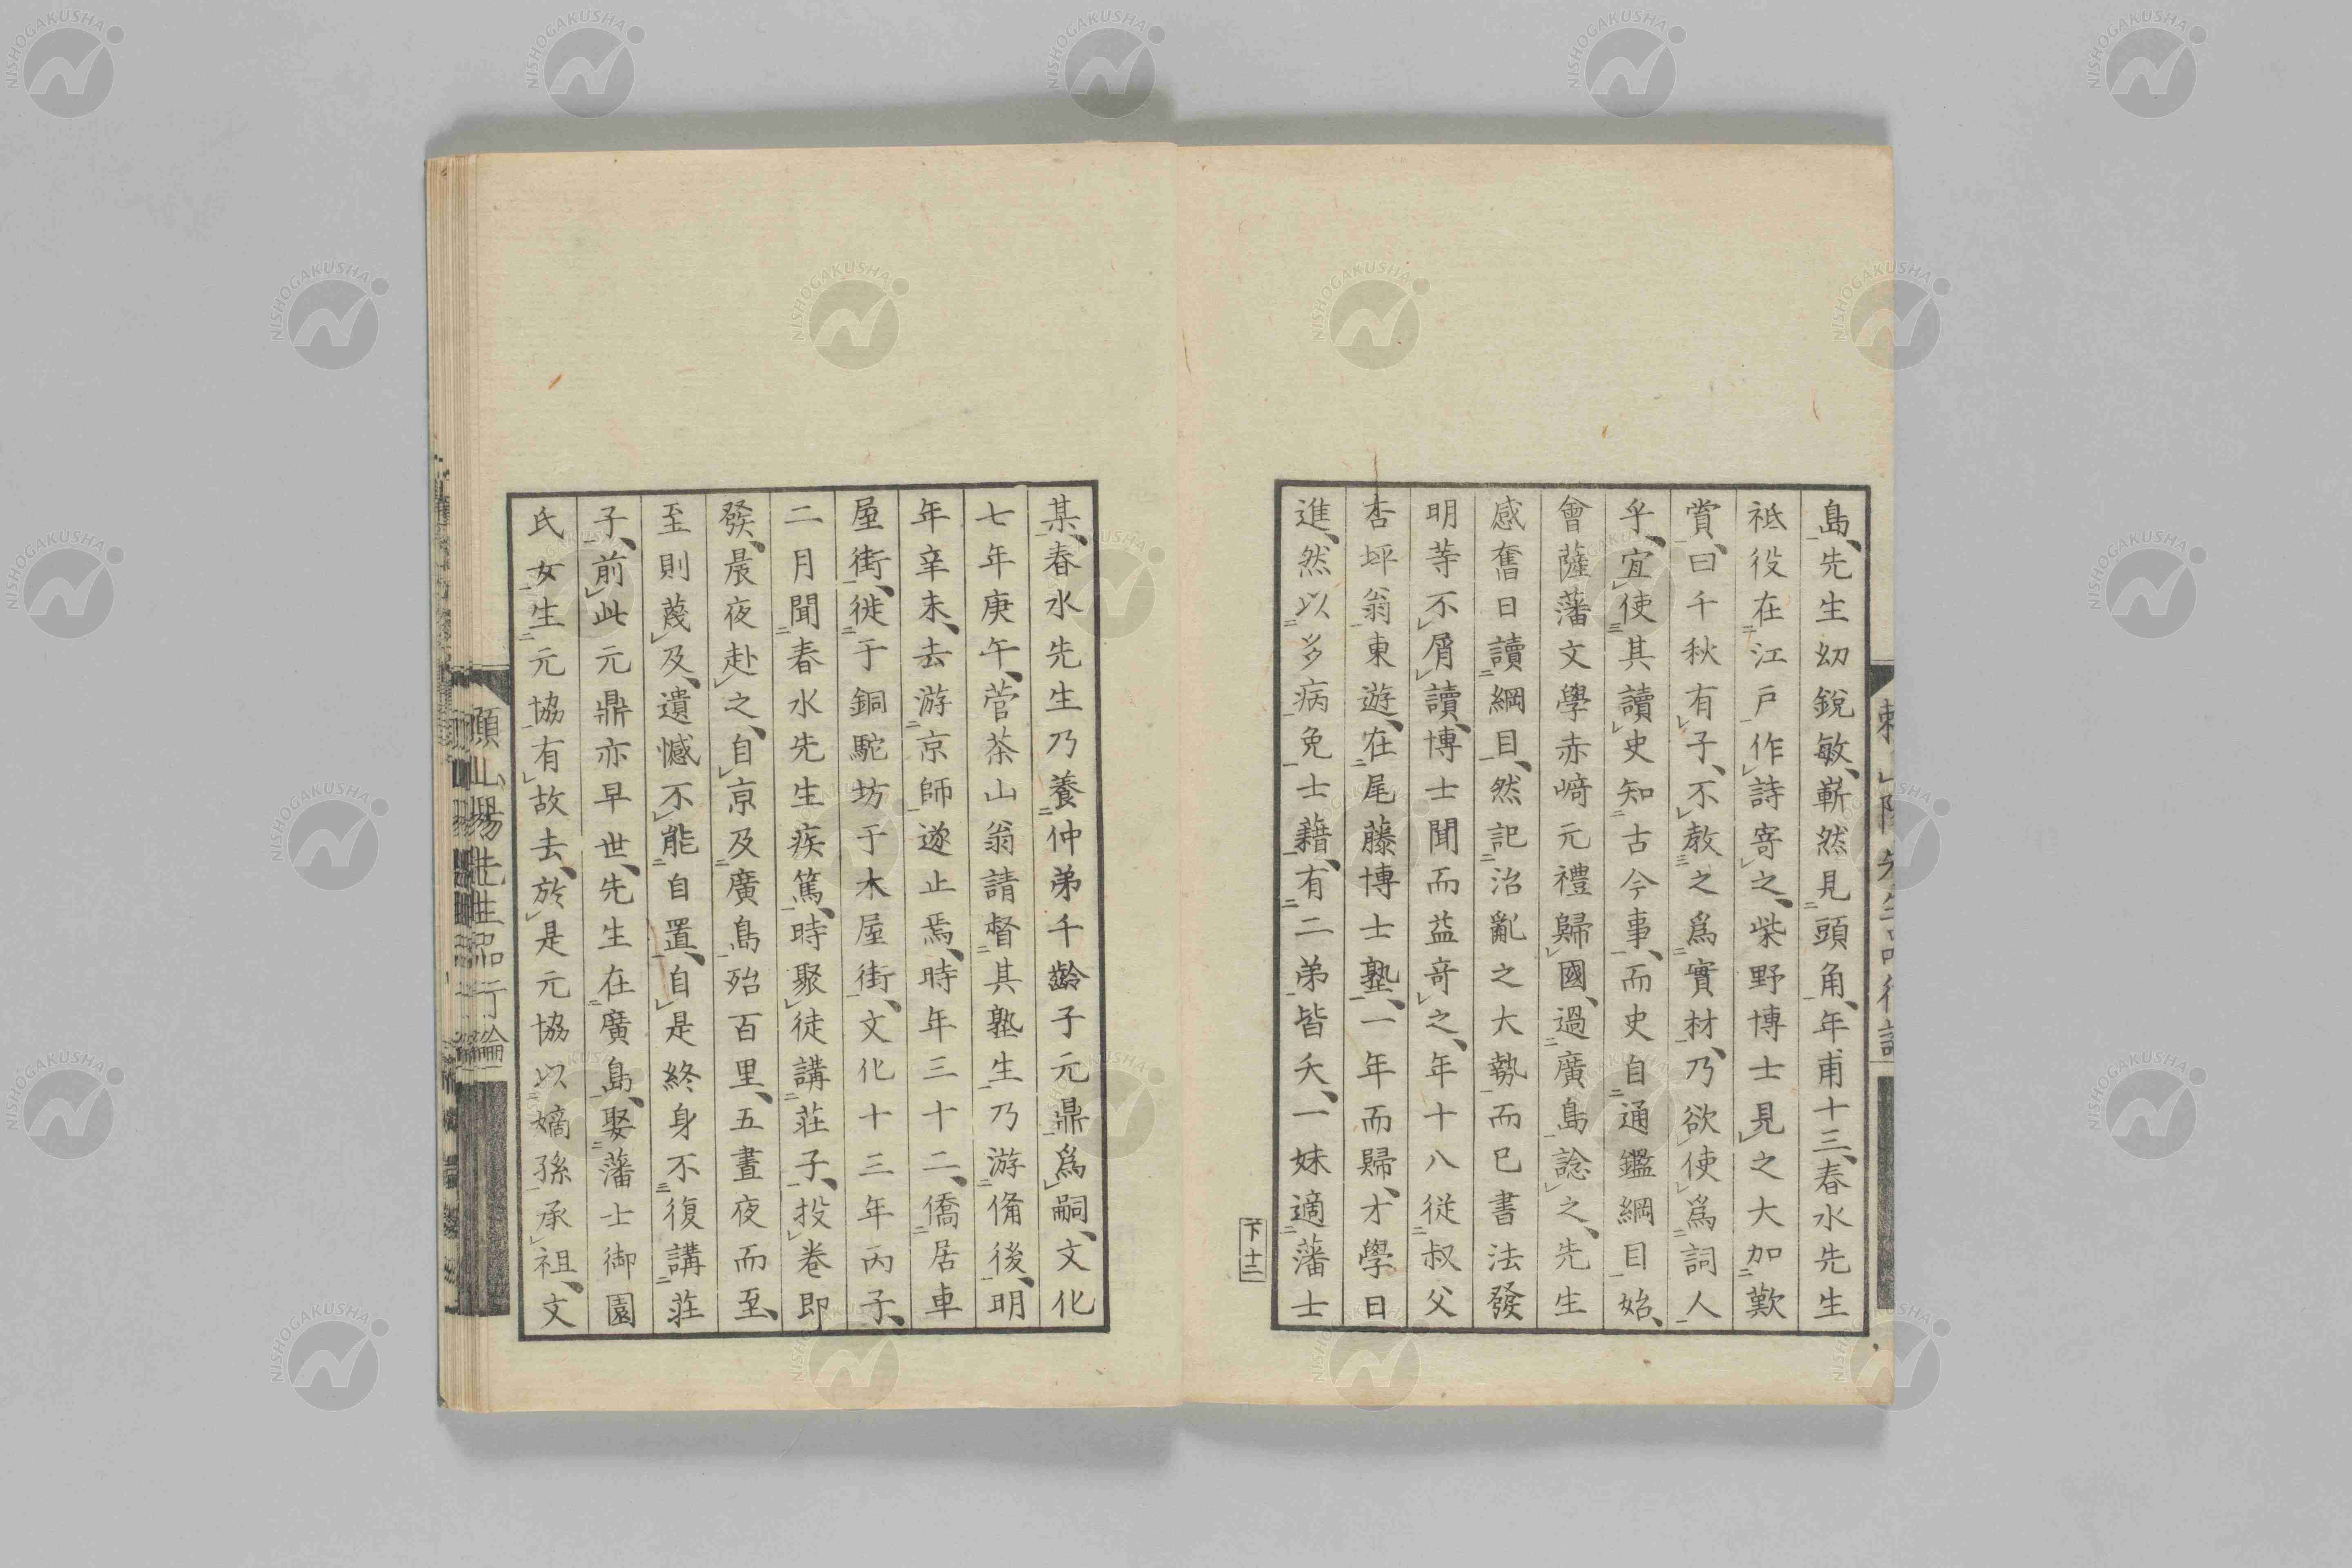 島、先生幼銳敏、嶄然見頭角、年甫十三、春水先生
祗役在江戸作詩寄之、柴野博士見之大加歎
賞、曰千秋有子、不教之爲實材、乃欲使爲詞人
乎、宜使其讀史知古今事、而史自通鑑綱目始、
會薩藩文學赤﨑元禮歸國、過廣島諗之、先生
感奮日讀綱目、然記治亂之大勢而已書法發
明等不屑讀、博士聞而益竒之、年十八從叔父
杏坪翁東遊、在尾藤博士塾、一年而歸、才學日
進、然以多病免士籍、有二弟皆夭、一妹適藩士
下十二
某、春水先生乃養仲弟千齡子元鼎爲嗣、文化
七年庚午、菅茶山翁請督其塾生乃游備後、明
年辛未、去游京師遂止焉、時年三十二、僑居車
屋街、徙于銅駝坊于木屋街、文化十三年丙子、
二月聞春水先生疾篤、時聚徒講莊子、投卷即
發、晨夜赴之、自京及廣島殆百里、五晝夜而至、
至則薨及、遺憾不能自置、自是終身不復講莊
子、前此元鼎亦早世、先生在廣島、娶藩士御園
氏女生元協有故去、於是元協以嫡孫承祖、文
NISHOGAKUSHA